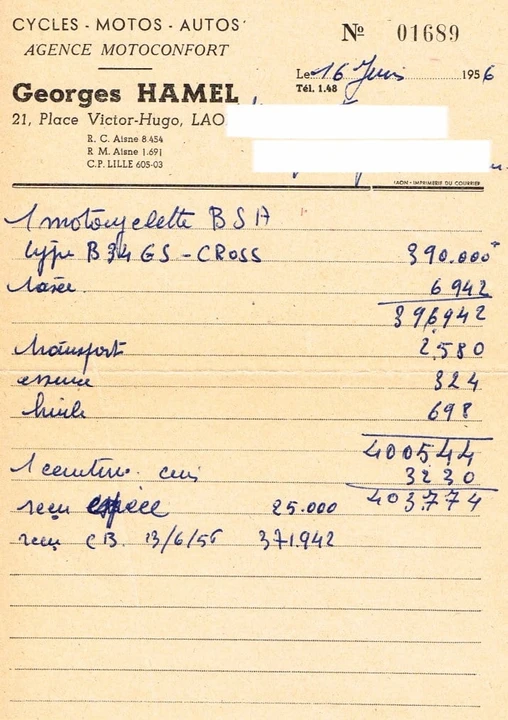 CYCLES - MOTOS - AUTOS
AGENCE MOTOCONFORT
Nº 01689
Georges HAMEL
Le 16 Juin 1956
Tél. 1.48
21, Place Victor-Hugo, LAO
R. C. Aisne 8.454
R M. Aisne 1.691
C.P. LILLE 605-03
LAON - IMPRIMERIE DU COURRIER
1 motocyclette BSA
type B34 GS - CROSS 390.000
taxée 6 942
396942
transport 2.580
essence 324
huile 698
400544
1 ceinture cuir 3230
403.774
reçu espèce 25.000
reçu CB 13/6/56 371.942